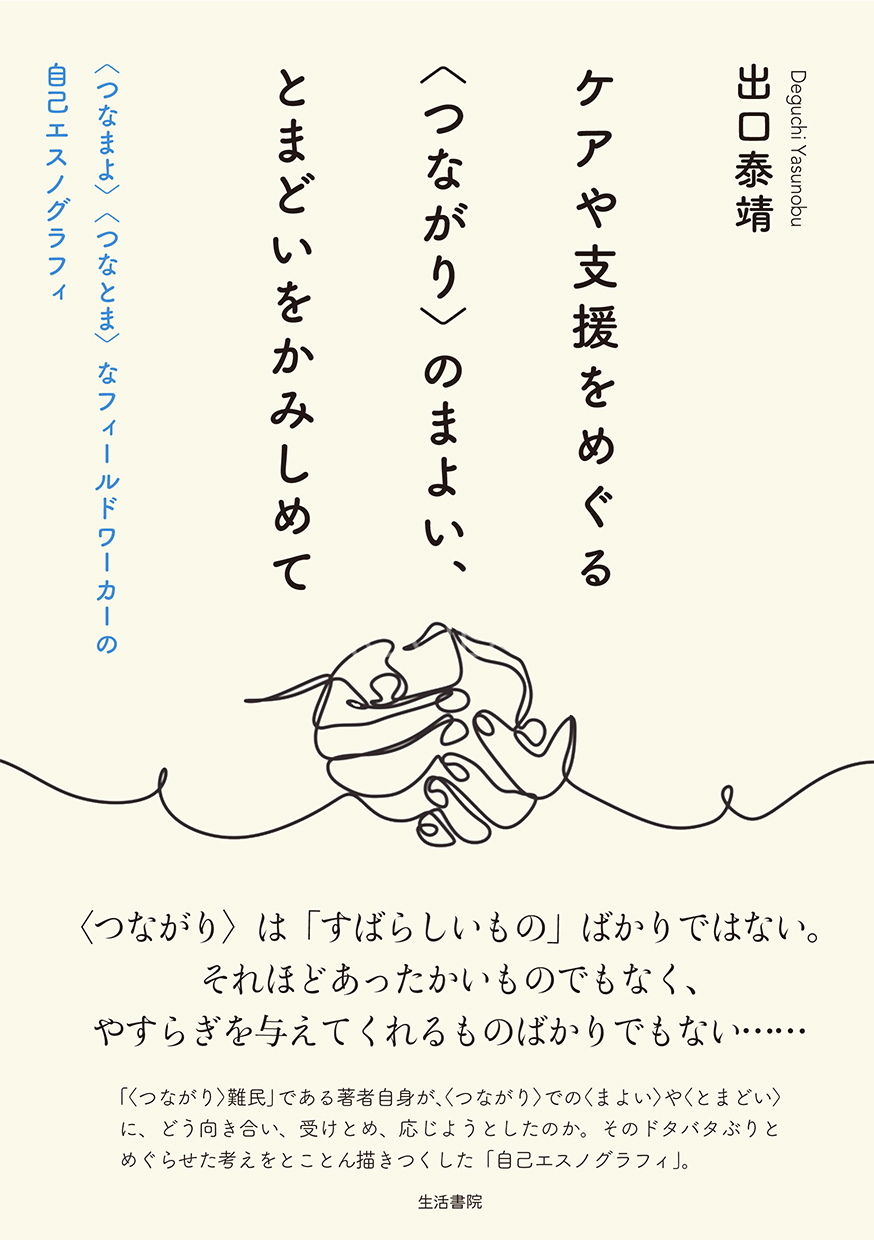 Deguchi Yasunobu
出口泰靖
ケアや支援をめぐる
〈つながり〉のまよい、
とまどいをかみしめて
〈つなまよ〉〈つなとま〉なフィールドワーカーの
自己エスノグラフィ
〈つながり〉は「すばらしいもの」ばかりではない。
それほどあったかいものでもなく、
やすらぎを与えてくれるものばかりでもない……
「〈つながり〉難民」である著者自身が、〈つながり〉での〈まよい〉や〈とまどい〉
に、どう向き合い、受けとめ、応じようとしたのか。そのドタバタぶりと
めぐらせた考えをとことん描きつくした「自己エスノグラフィ」。
生活書院